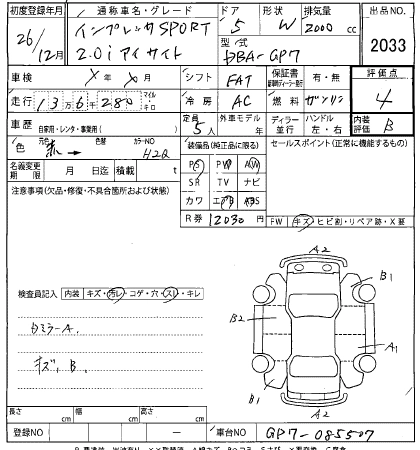 初度登録年月 通称車名・グレード ドア 形状 排気量 出品NO
26/12月 インプレッサSPORT 2.0i アイサイト 5 W 2000 cc 2033
型式 DBA-GP7
車検 ×年×月 シフト FAT 保証書 有・無 評価点
走行 13万6千280 マイル キロ 冷房 AC 燃料 ガソリン 4
車歴 自家用・レンタ・事業用( ) 定員 5人 外車モデル 年 ディーラー 並行 ハンドル 左・右 内装評価 B
色 元色 赤→ 色替 カラーNO H2Q 装備品(純正品に限る) セールスポイント(正常に機能するもの)
名義変更期限 月 日迄 積載 t PS PW AW
SR TV ナビ
注意事項(欠品・修復・不具合箇所および状態) カワ エアB ABS
R券 12030 円
FW キズ・ヒビ割・リペア跡・X要
A2
検査員記入 内装 キズ・汚レ・コゲ・穴・スレ・キレ
B1
B2
カミラーA.
A1
キズ, B.
B1
A2
長さ cm 幅 cm 高さ cm
登録NO — 車台NO GP7-085507